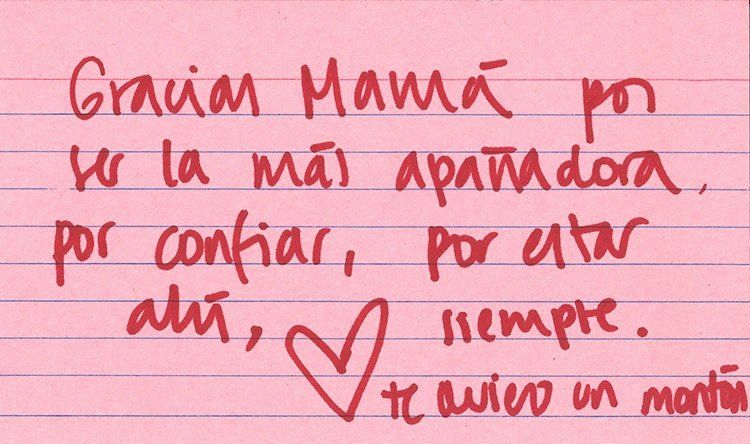 Gracias Mamá por
ser la más apañadora,
por confiar, por estar
ahí, siempre.
te quiero un montón